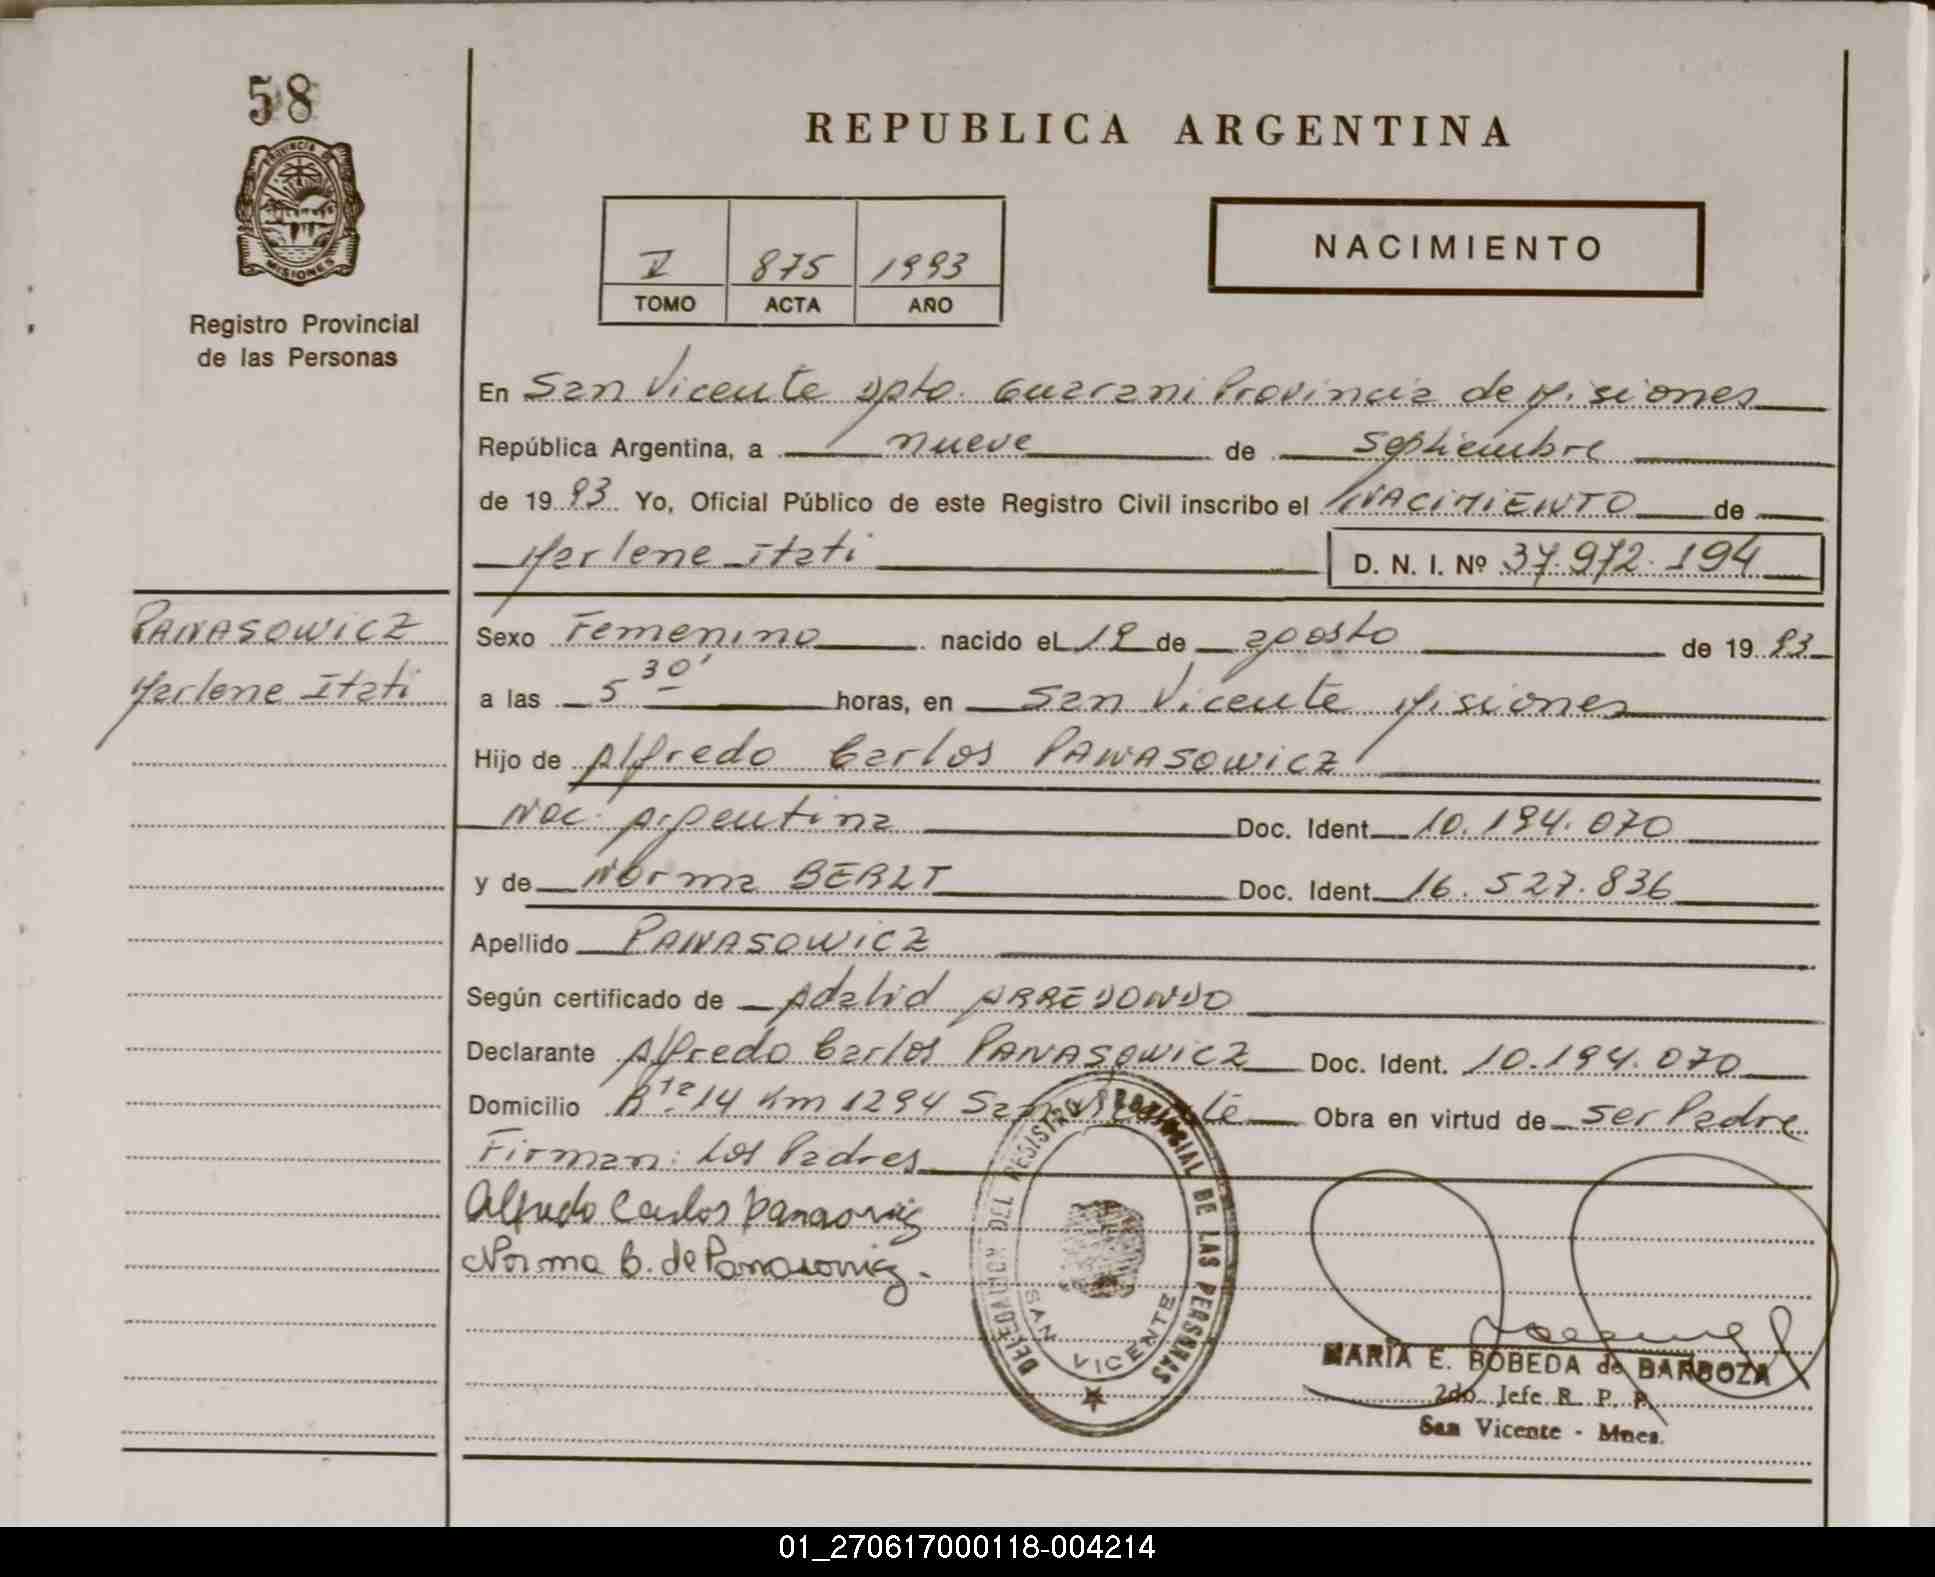 58
PROVINCIA DE
MISIONES
Registro Provincial
de las Personas
REPUBLICA ARGENTINA
V 875 1993
TOMO ACTA AÑO
NACIMIENTO
En San Vicente Dpto. Guarani Provincia de Misiones
República Argentina, a nueve de Septiembre
de 19 93 Yo, Oficial Público de este Registro Civil inscribo el NACIMIENTO de
Marlene Itati D. N. I. Nº 37.972.194
PANASOWICZ
Marlene Itati
Sexo Femenino nacido el 19 de agosto de 19 93
a las 5 30' horas, en San Vicente Misiones
Hijo de Alfredo Carlos PANASOWICZ
Nac. Argentina Doc. Ident. 10.194.070
y de Norma BERLT Doc. Ident. 16.527.836
Apellido PANASOWICZ
Según certificado de Adalid ARREDONDO
Declarante Alfredo Carlos PANASOWICZ Doc. Ident. 10.194.070
Domicilio Rta. 14 Km 1294 San Vicente Obra en virtud de ser Padre
Firman: Los Padres
Alfredo Carlos Panasowicz
Norma B. de Panasowicz.
DELEGACION DEL REGISTRO PROVINCIAL DE LAS PERSONAS
SAN VICENTE
MARIA E. BOBEDA de BARBOZA
2do. Jefe R. P. P.
San Vicente - Mnes.
01_270617000118-004214